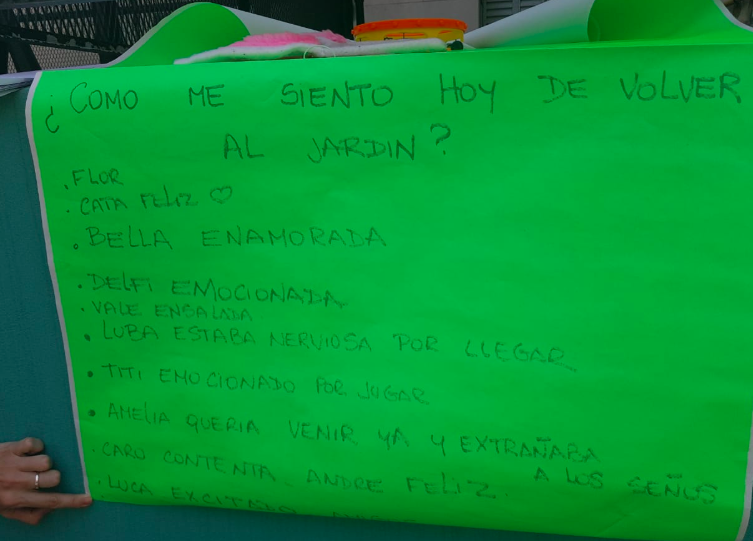 ¿COMO ME SIENTO HOY DE VOLVER
AL JARDIN?
.FLOR
.CATA FELIZ ♡
.BELLA ENAMORADA
.DELFI EMOCIONADA
.VALE ENSALADA
.LUBA ESTABA NERVIOSA POR LLEGAR
.TITI EMOCIONADO POR JUGAR
.AMELIA QUERIA VENIR YA Y EXTRAÑABA
A LOS SEÑUS
.CARO CONTENTA ANDRE FELIZ
.LUCA EXCITADO